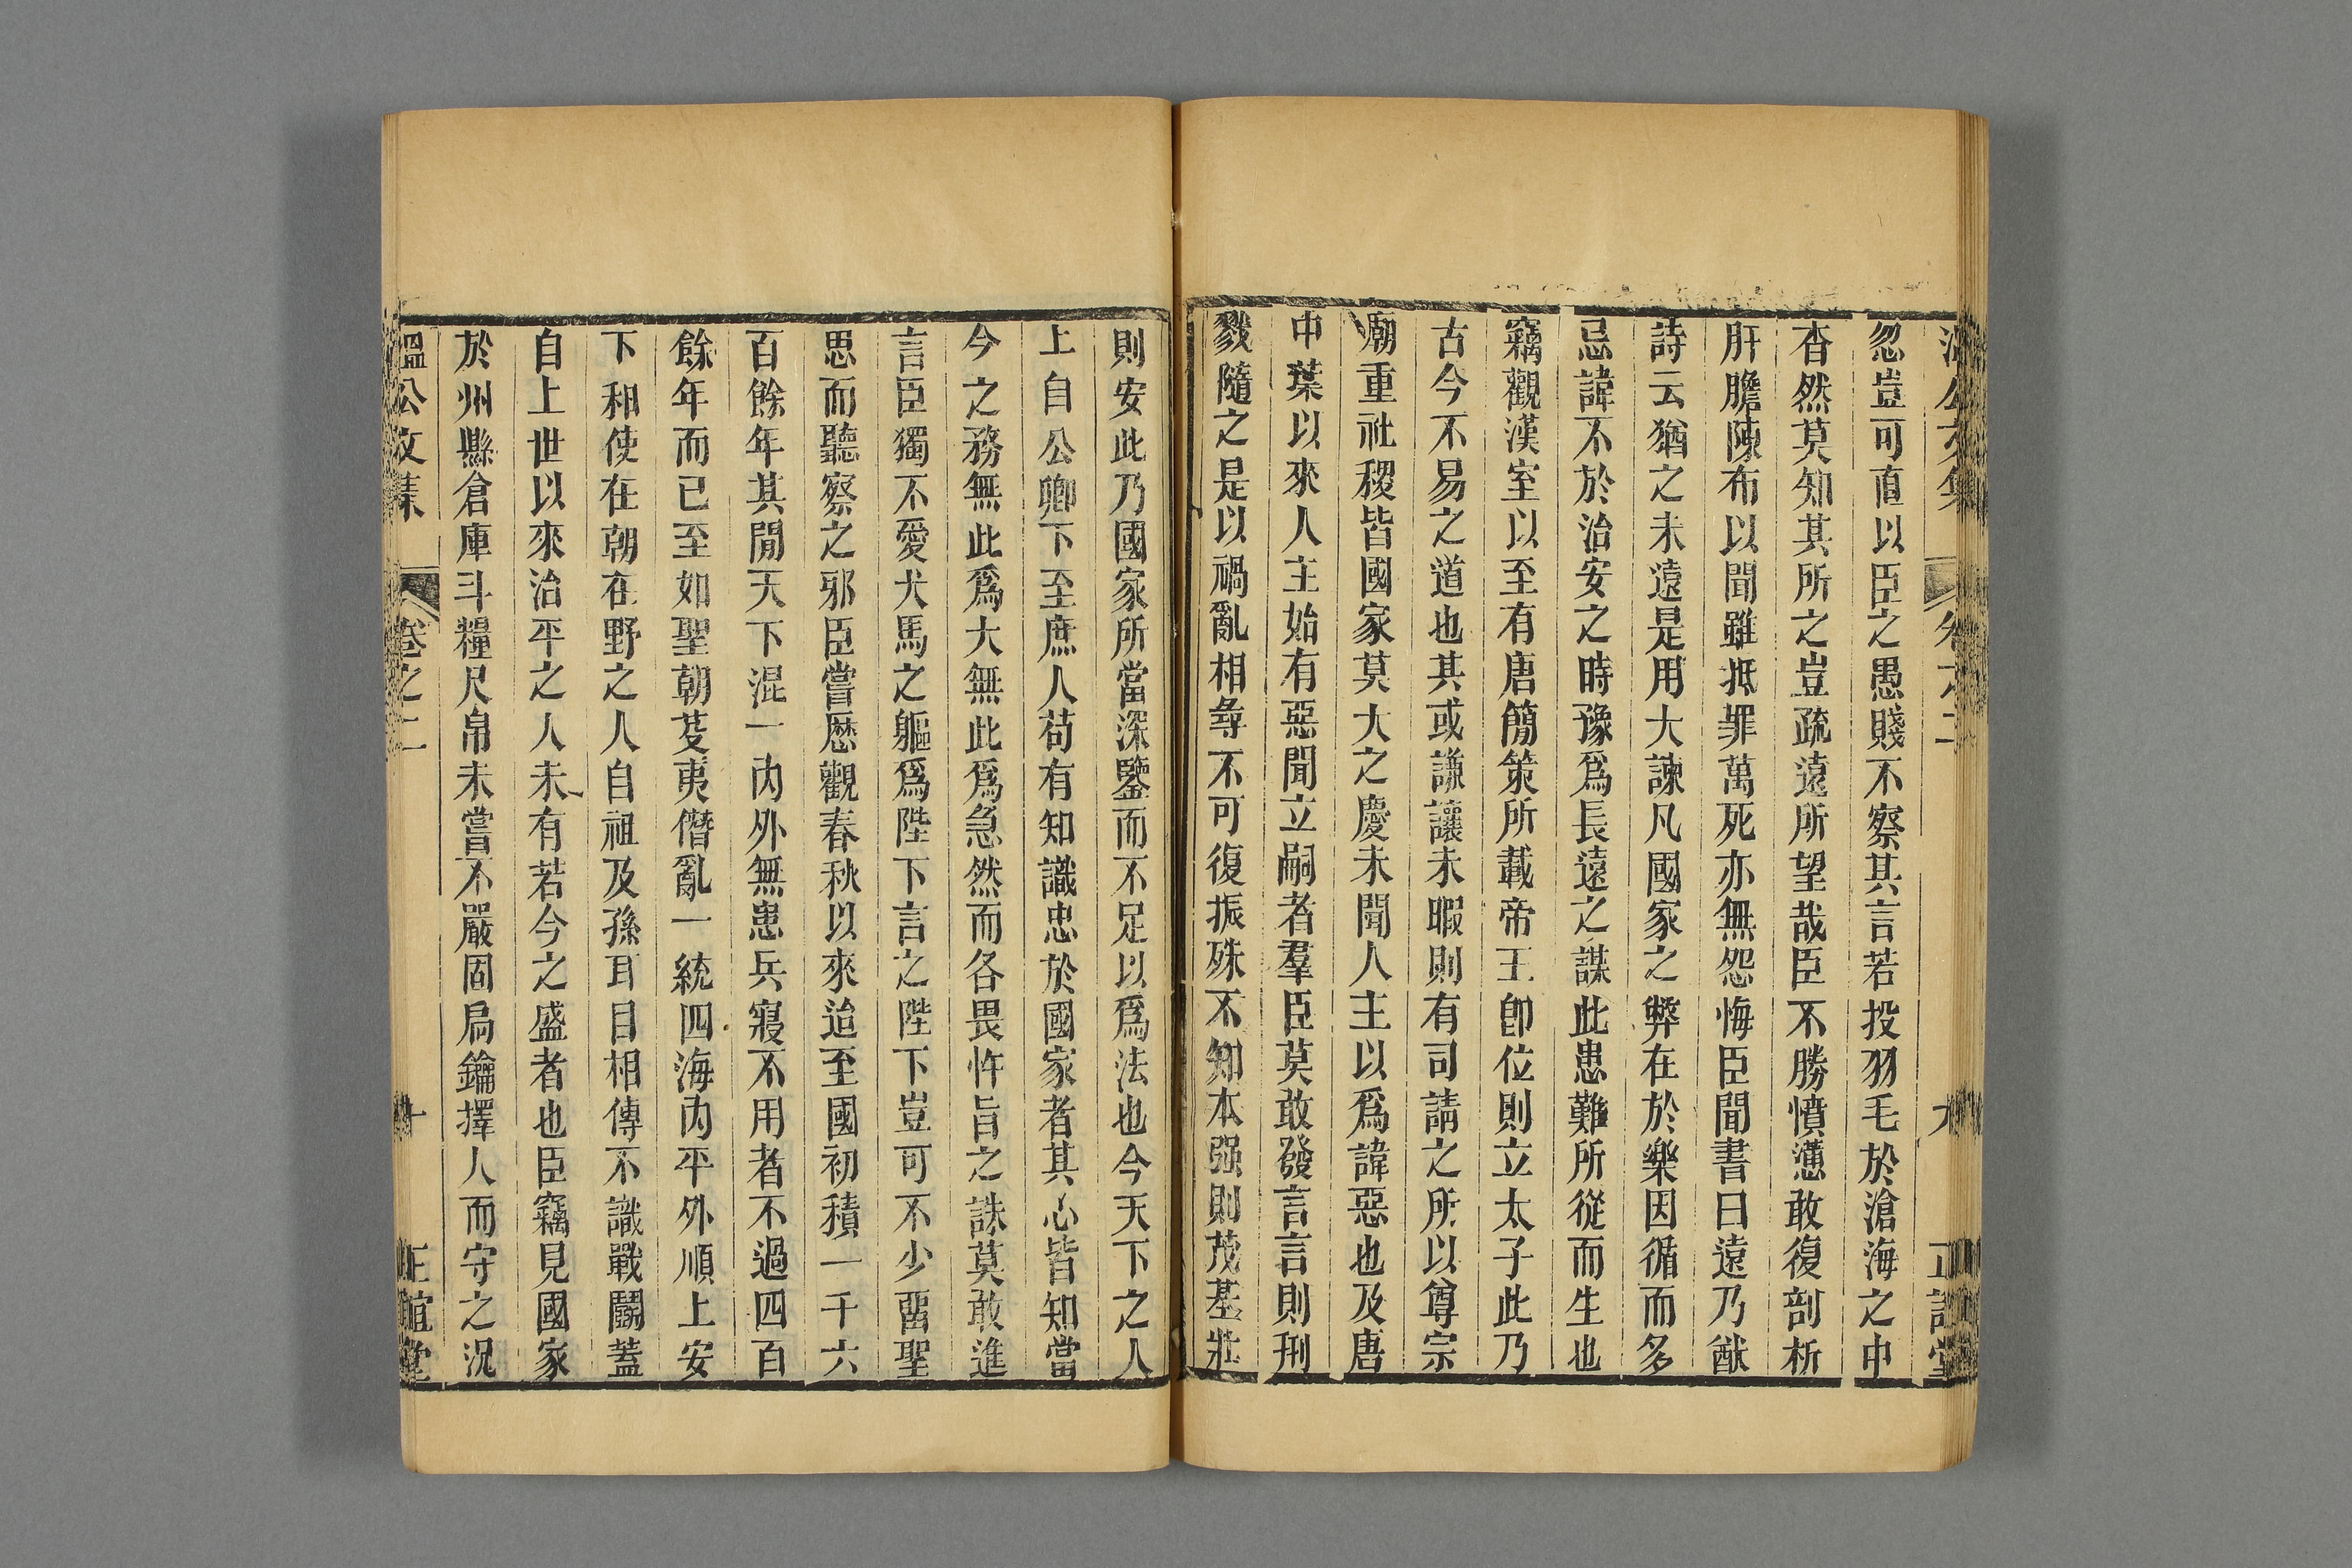 溫公文集 卷之二 九 正誼堂
忽豈可直以臣之愚賤不察其言若投羽毛於滄海之中
杳然莫知其所之豈疏遠所望哉臣不勝憤懣敢復剖析
肝膽陳布以聞雖抵罪萬死亦無怨悔臣聞書曰遠乃猷
詩云猶之未遠是用大諫凡國家之弊在於樂因循而多
忌諱不於治安之時豫爲長遠之謀此患難所從而生也
竊觀漢室以至有唐簡策所載帝王卽位則立太子此乃
古今不易之道也其或謙讓未暇則有司請之所以尊宗
廟重社稷皆國家莫大之慶未聞人主以爲諱惡也及唐
中葉以來人主始有惡聞立嗣者羣臣莫敢發言言則刑
戮隨之是以禍亂相尋不可復振殊不知本强則茂基壯
則安此乃國家所當深鑒而不足以爲法也今天下之人
上自公卿下至庶人苟有知識忠於國家者其心皆知當
今之務無此爲大無此爲急然而各畏忤旨之誅莫敢進
言臣獨不愛犬馬之軀爲陛下言之陛下豈可不少畱聖
思而聽察之邪臣嘗歷觀春秋以來迨至國初積一千六
百餘年其閒天下混一内外無患兵寢不用者不過四百
餘年而已至如聖朝芟夷僭亂一統四海内平外順上安
下和使在朝在野之人自祖及孫耳目相傳不識戰鬬蓋
自上世以來治平之人未有若今之盛者也臣竊見國家
於州縣倉庫斗糧尺帛未嘗不嚴固扃鑰擇人而守之況
溫公文集 卷之二 十 正誼堂